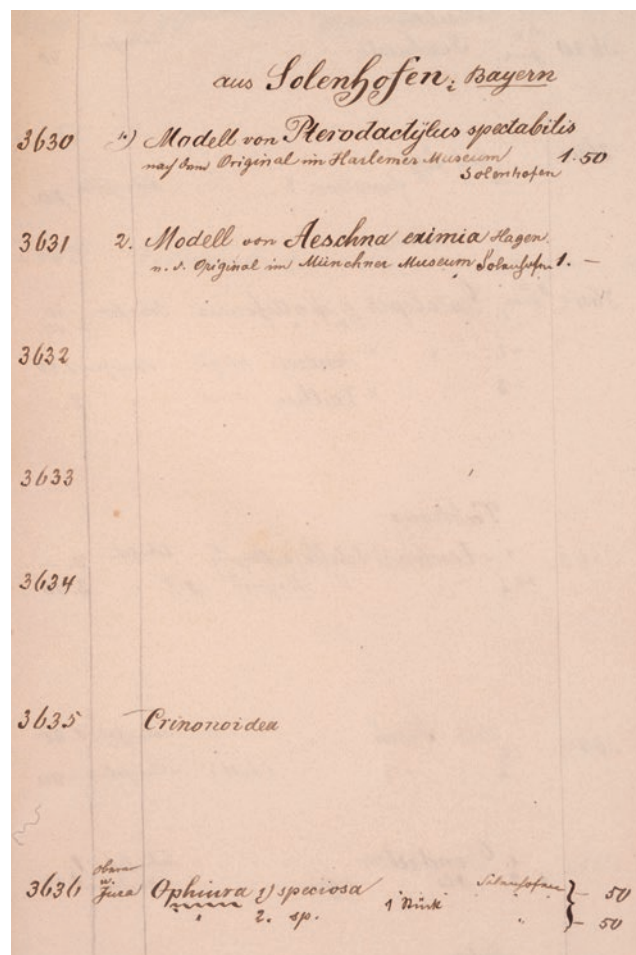 aus Solenhofen i Bayern
3630 1.) Modell von Pterodactylus spectabilis
nach dem Original im Harlemer Museum 1.50
Solenhofen
3631 2. Modell von Aeschna eximia Hagen.
n. d. Original im Münchner Museum Solenhofen 1. —
3632
3633
3634
3635 Crinonoidea
3636 oberer
Jura Ophiura 1) speciosa 1 Stück Solenhofen — 50
" 2. sp. " — 50